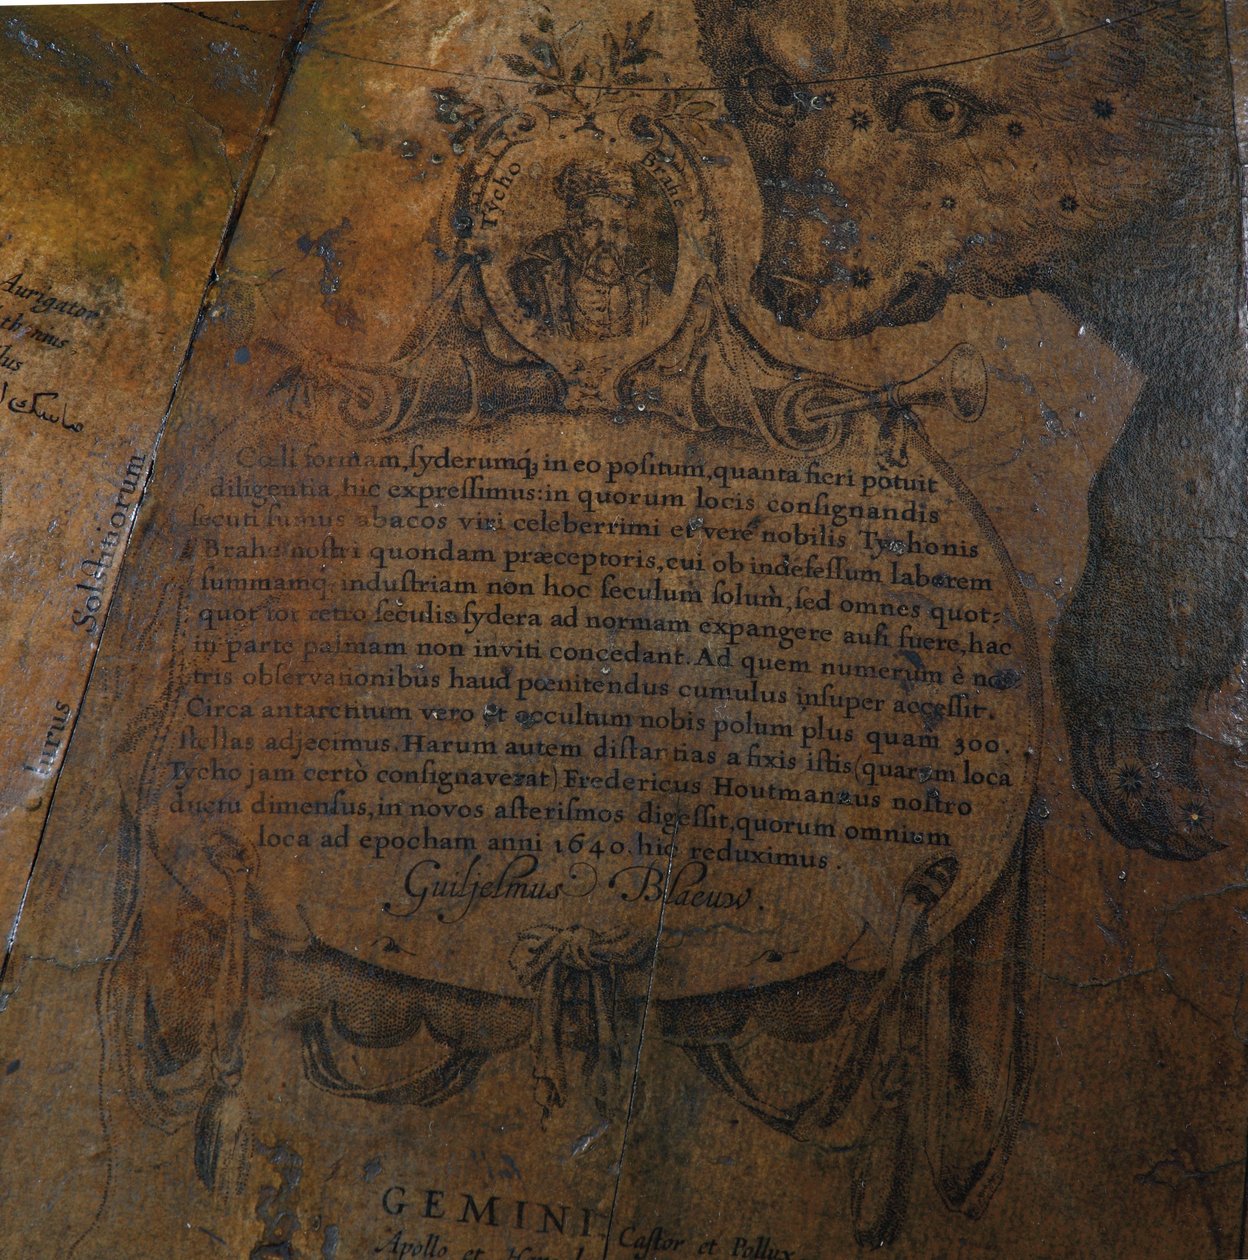 Tycho Brahe
Aurigator
lus
ماسك ا
Solstitiorum
lurus
Cœli formam, ſyderumq́; in eo poſitum, quanta fieri potuit
diligentia hic expreſſimus: in quorum locis conſignandis
ſecuti ſumus abacos viri celeberrimi et verè nobilis Tychonis
Brahe noſtri quondam præceptoris, cui ob indefeſſum laborem
ſummamq, induſtriam non hoc ſeculum ſolum, ſed omnes quot;
quot tot retro ſeculis ſydera ad normam expangere auſi fuere, hac
in parte palmam non inviti concedant. Ad quem numerum è noſ
tris obſervationibus haud pœnitendus cumulus inſuper acceſſit.
Circa antarctitum vero et occultum nobis polum plus quam 300.
ſtellas adjecimus. Harum autem diſtantias a fixis iſtis (quarum loca
Tycho jam certò conſignaverat) Fredericus Houtmannus noſtro
ductu dimenſus, in novos aſteriſmos digeſſit, quorum omnium
loca ad epocham anni 1640. hic reduximus.
Guiljelmus Blaeuw.
GEMINI
Apollo et Castor et Pollux